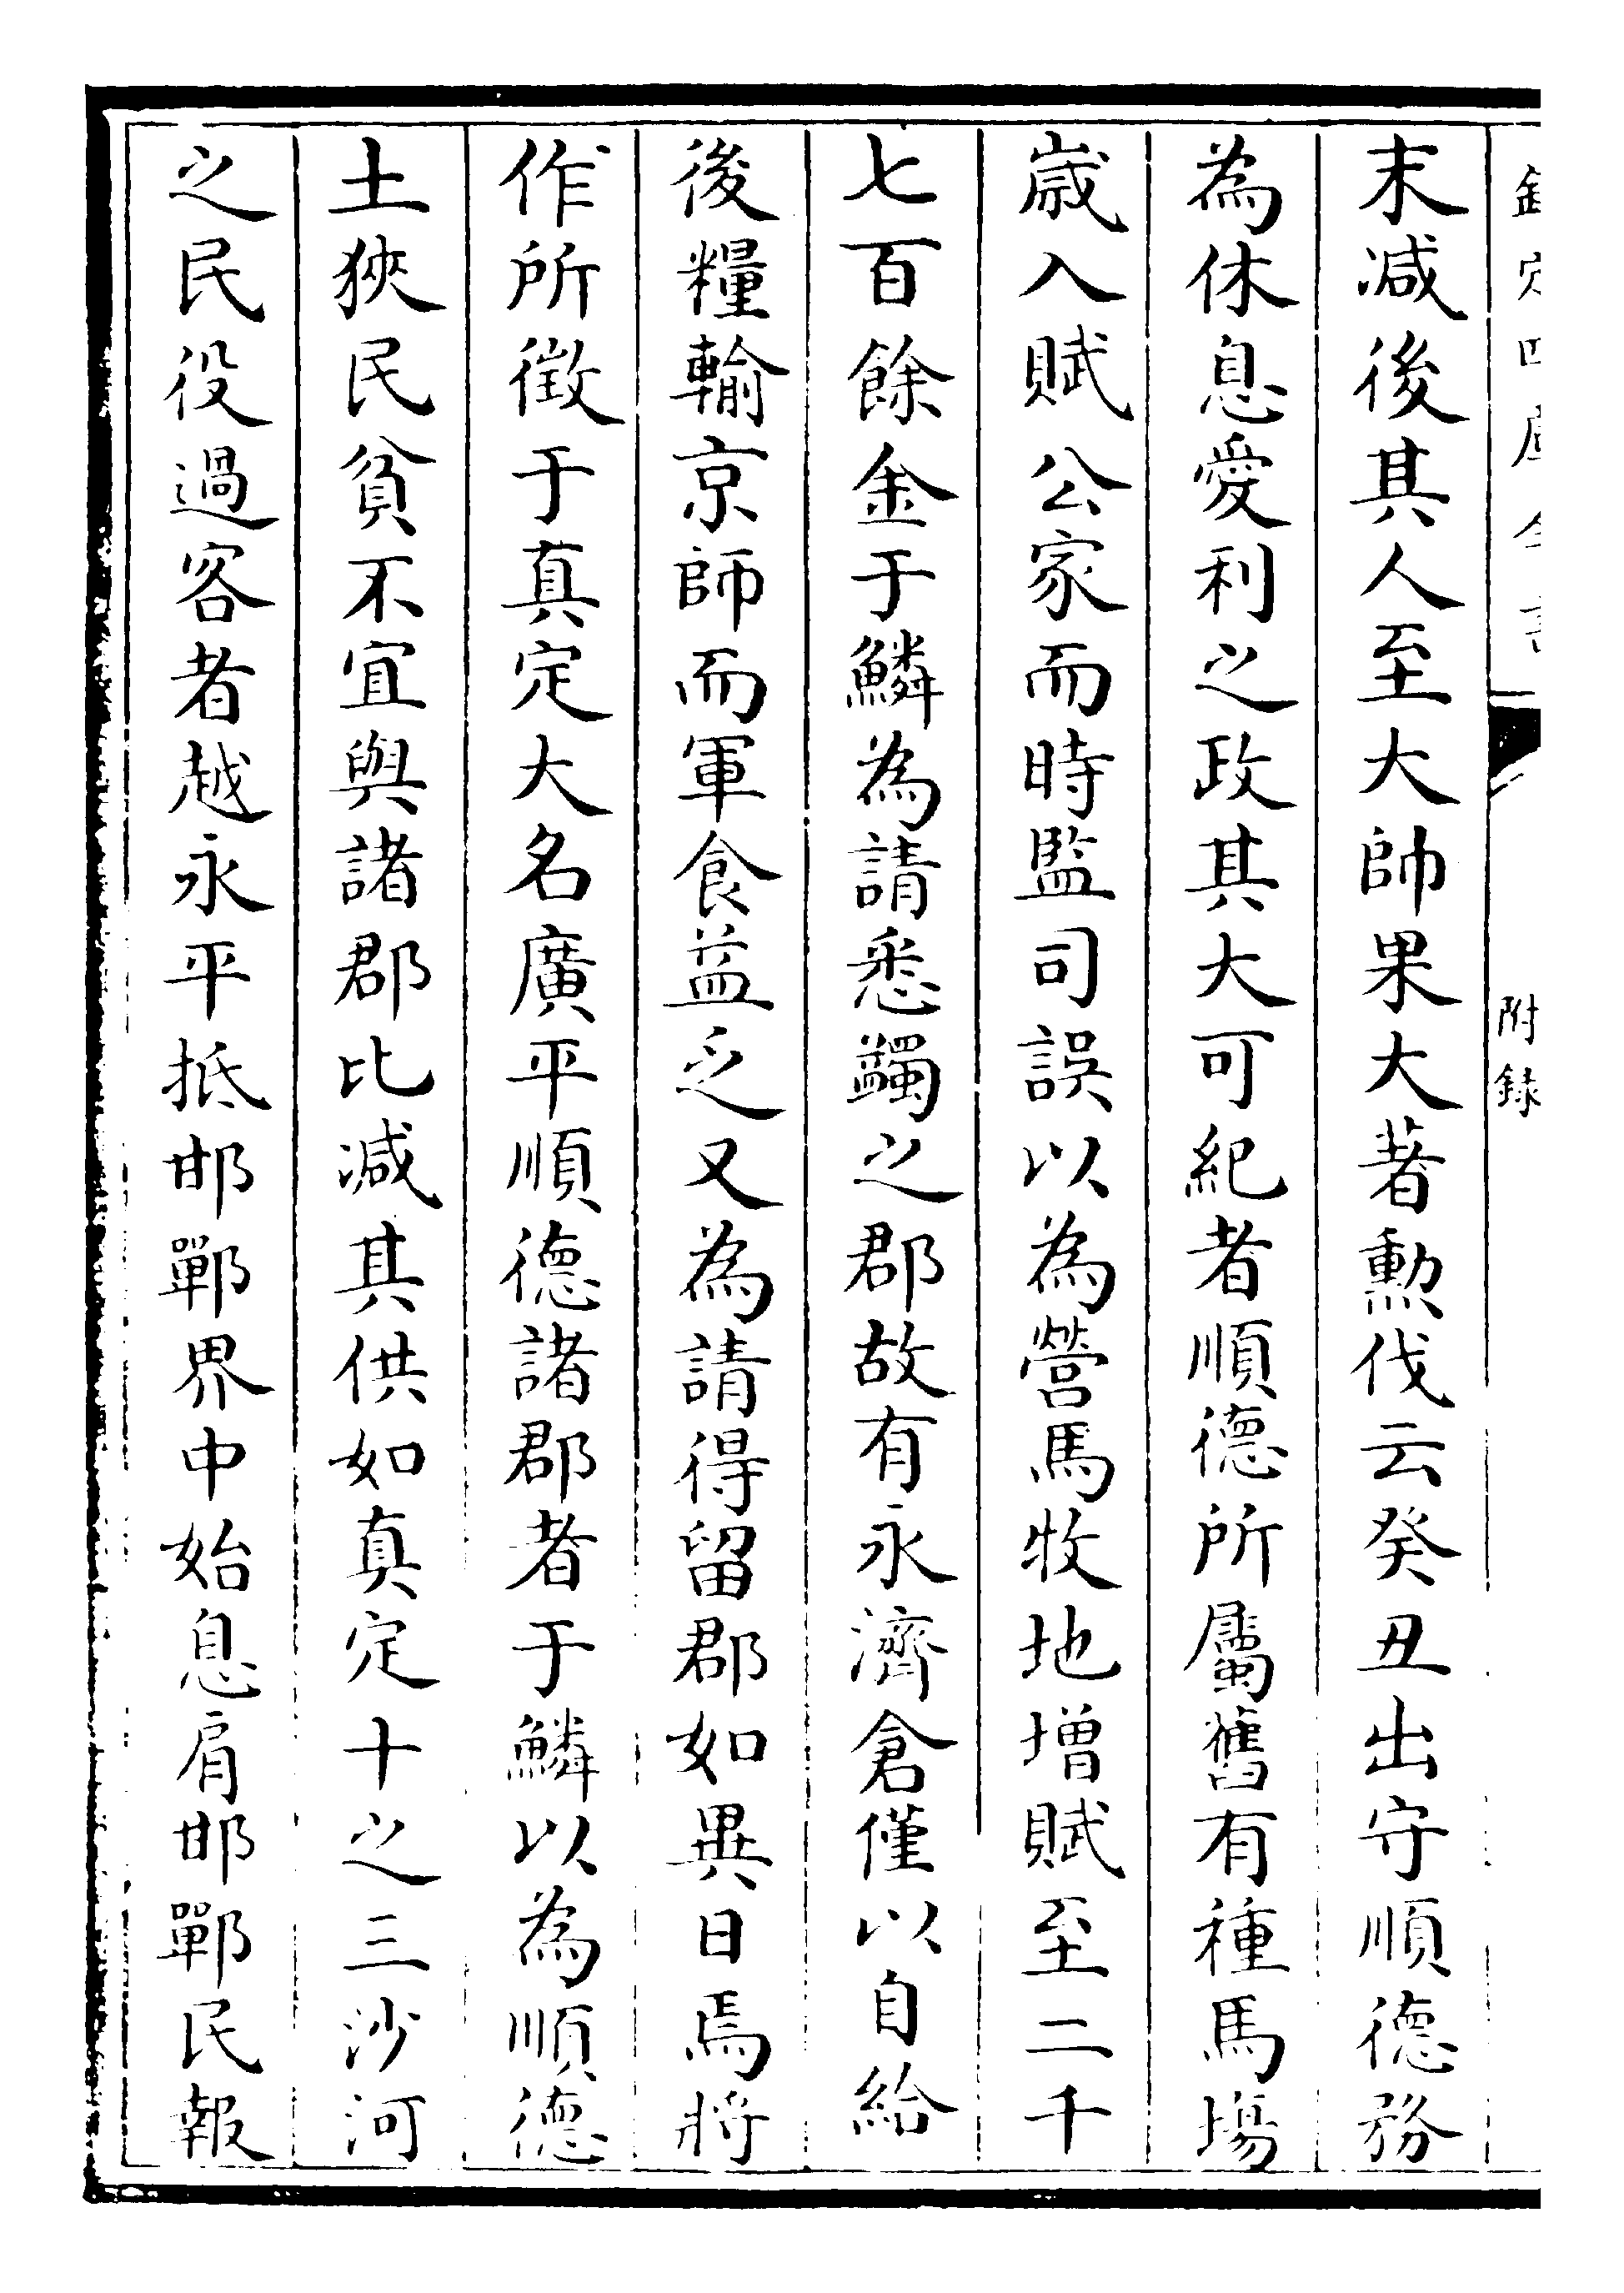 欽定四庫全書
附録
末减後其人至大帥果大著勲伐云癸丑出守順德務
為休息愛利之政其大可紀者順德所屬舊有種馬場
嵗入賦公家而時監司誤以為營馬牧地增賦至二千
七百餘金于鱗為請悉蠲之郡故有永濟倉僅以自給
後糧輸京師而軍食益乏又為請得留郡如異日焉將
作所徵于真定大名廣平順德諸郡者于鱗以為順德
土狹民貧不宜與諸郡比减其供如真定十之三沙河
之民役過客者越永平抵邯鄲界中始息肩邯鄲民報